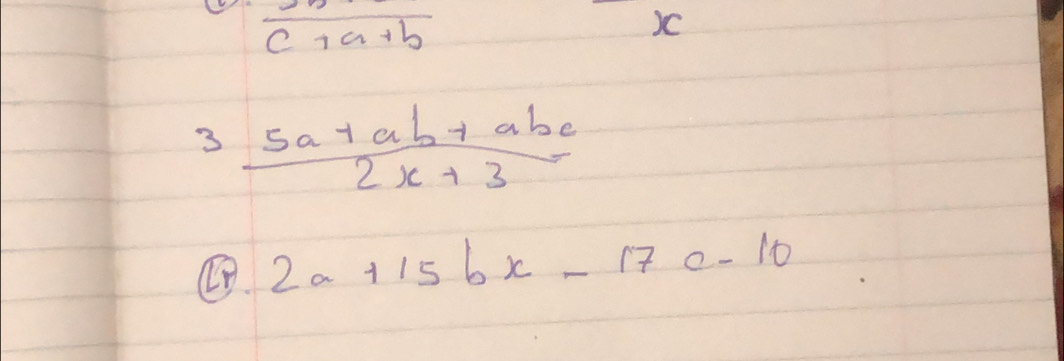 c + a + b
x
3 5a + ab + abc
2x + 3
4. 2a + 15bx - 17c - 10